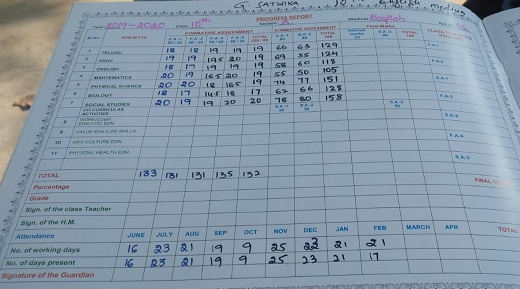 G. SATWIKA 10 English medium
PROGRESS REPORT
Year 2019-2020 Class 10th Section: A Medium: English
Sl.No. SUBJECTS FORMATIVE ASSESSMENT SUMMATIVE ASSESSMENT Final Marks
1 TELUGU 18 18 19 19 19 66 63 129
2 HINDI 19 19 19.5 20 19 69 55 124
3 ENGLISH 18 17 19 19 19 58 60 118
4 MATHEMATICS 20 19 16.5 20 19 55 50 105
5 PHYSICAL SCIENCE 20 20 18 18.5 19 74 77 151
6 BIOLOGY 18 17 14.5 18 17 62 66 128
7 SOCIAL STUDIES 20 19 19 20 20 78 80 158
CO-CURRICULAR
ACTIVITIES
8 WORK/COMP.
EDN./VOC.EDN
9 VALUE EDN/LIFE SKILLS
10 ART/ CULTURE EDN
11 PHY.EDN / HEALTH EDN
TOTAL 133 131 131 135 132
Percentage
Grade
Sign. of the class Teacher
Sign. of the H.M.
Attendance JUNE JULY AUG SEP OCT NOV DEC JAN FEB MARCH APR TOTAL
No. of working days 16 23 21 19 9 25 23 21 21
No. of days present 16 23 21 19 9 25 23 21 17
Signature of the Guardian